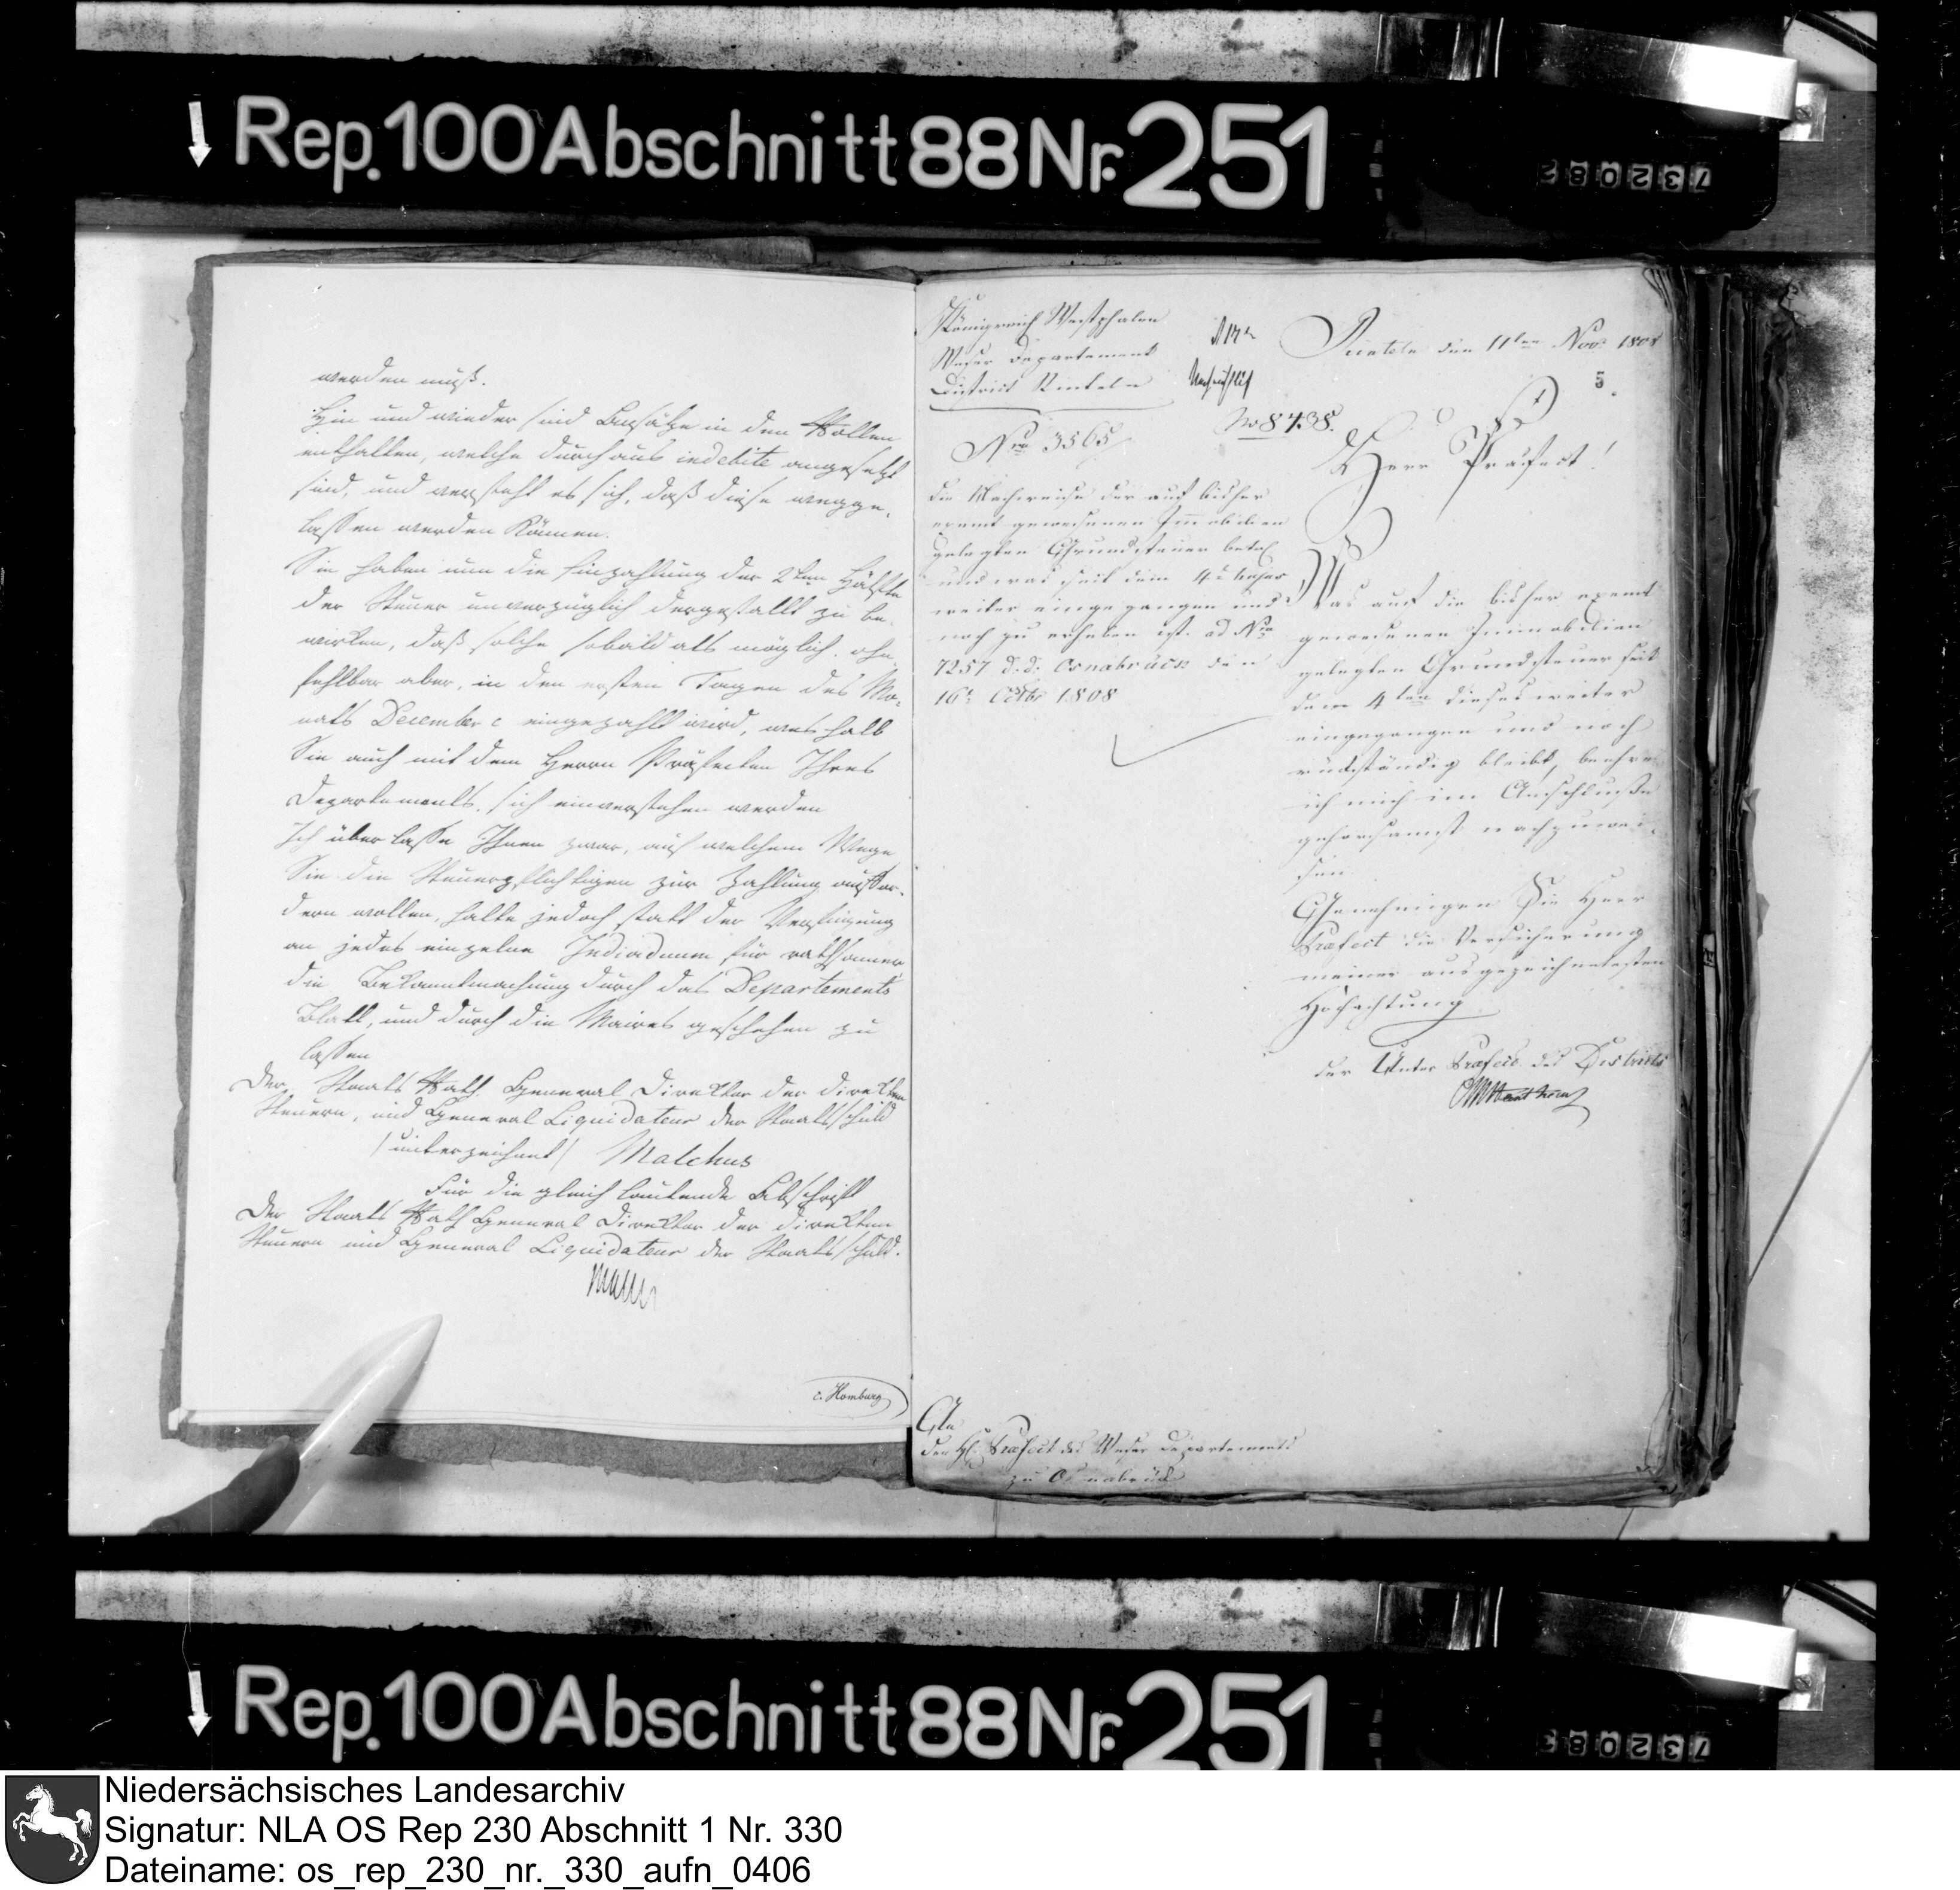 Rep. 100 Abschnitt 88 Nr. 251
732082
werden muß.
Hin und wieder sind Ansätze in den Rollen
enthalten, welche durchaus indebite angesetzt
sind, und versteht es sich, daß diese wegge-
lassen werden können.
Sie haben nun die Einzahlung der 2ten Hälfte
der Steuer unverzüglich dergestallt zu be-
wirken, daß solche sobald als möglich, ohn-
fehlbar aber, in den ersten Tagen des Mo-
nats December c eingezahlt wird, weshalb
Sie auch mit dem Herrn Präfecten Ihres
Departements, sich einverstehen werden
Ich überlasse Ihnen zwar, auf welchem Wege
Sie die Steuerpflichtigen zur Zahlung auffor-
dern wollen, halte jedoch statt der Verfügung
an jedes einzelne Individuum für rathsamer
die Bekanntmachung durch das Departements
Blatt, und durch die Maires geschehen zu
lassen
Der Staats Rath, General Direktor der direkten
Steuern, und General Liquidateur der Staatsschuld
/unterzeichnet/ Malchus
Für die gleich lautende Abschrift
Der Staats Rath General Direktor der direkten
Steuern und General Liquidateur der Staatsschuld.
c. Homburg
Königreich Westphalen
Weser Departement
District Rinteln
Rinteln den 11ten Nov. 1808
5.
No 8438.
Nro 3565
Herr Präfect!
Die Nachweise der auf bisher
exemt gewesenen Immobilien
gelegten Grundsteuer betr.
und was seit dem 4t. dieser
weiter eingegangen und
noch zu erheben ist. ad Nro
7257 d. d. Osnabrück den
16t. Octbr 1808
Was auf die bisher exemt
gewesenen Immobilien
gelegten Grundsteuer seit
dem 4ten dieses weiter
eingegangen und noch
rückständig bleibt, beehre
ich mich im Anschlusse
gehorsamst nachzuwei-
sen
Genehmigen Sie Herr
Præfect die Versicherung
meiner ausgezeichnetesten
Hochachtung
der Unter Præfect des Districts
An
den H. Præfect des Weser Departements
zu Osnabrück
Rep. 100 Abschnitt 88 Nr. 251
732083
Niedersächsisches Landesarchiv
Signatur: NLA OS Rep 230 Abschnitt 1 Nr. 330
Dateiname: os_rep_230_nr._330_aufn_0406